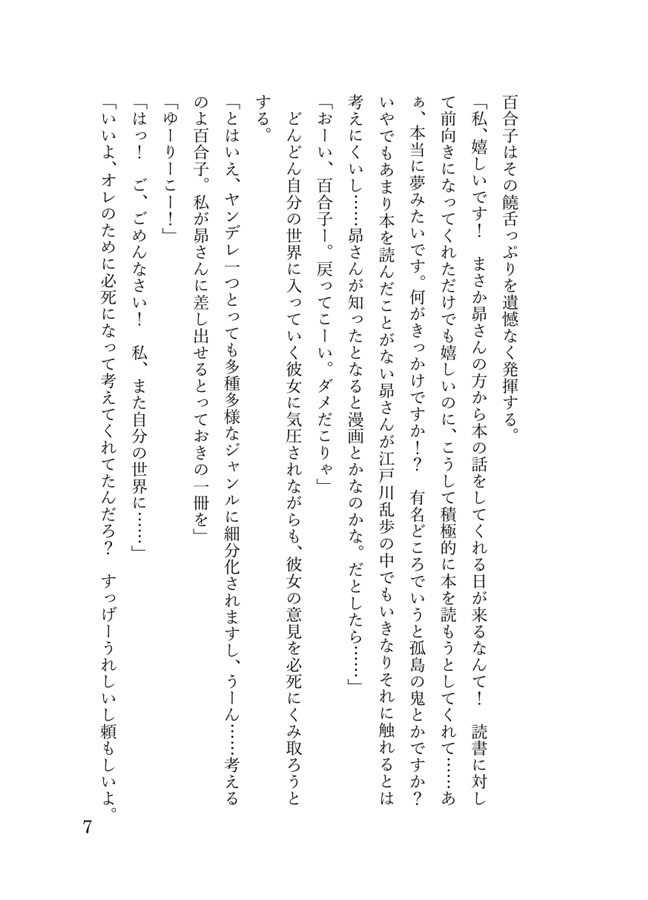 百合子はその饒舌っぷりを遺憾なく発揮する。
「私、嬉しいです！　まさか昴さんの方から本の話をしてくれる日が来るなんて！　読書に対し
て前向きになってくれただけでも嬉しいのに、こうして積極的に本を読もうとしてくれて……あ
ぁ、本当に夢みたいです。何がきっかけですか！？　有名どころでいうと孤島の鬼とかですか？
いやでもあまり本を読んだことがない昴さんが江戸川乱歩の中でもいきなりそれに触れるとは
考えにくいし……昴さんが知ったとなると漫画とかなのかな。だとしたら……」
「おーい、百合子ー。戻ってこーい。ダメだこりゃ」
　どんどん自分の世界に入っていく彼女に気圧されながらも、彼女の意見を必死にくみ取ろうと
する。
「とはいえ、ヤンデレ一つとっても多種多様なジャンルに細分化されますし、うーん……考える
のよ百合子。私が昴さんに差し出せるとっておきの一冊を」
「ゆーりーこー！」
「はっ！　ご、ごめんなさい！　私、また自分の世界に……」
「いいよ、オレのために必死になって考えてくれてたんだろ？　すっげーうれしいし頼もしいよ。
7